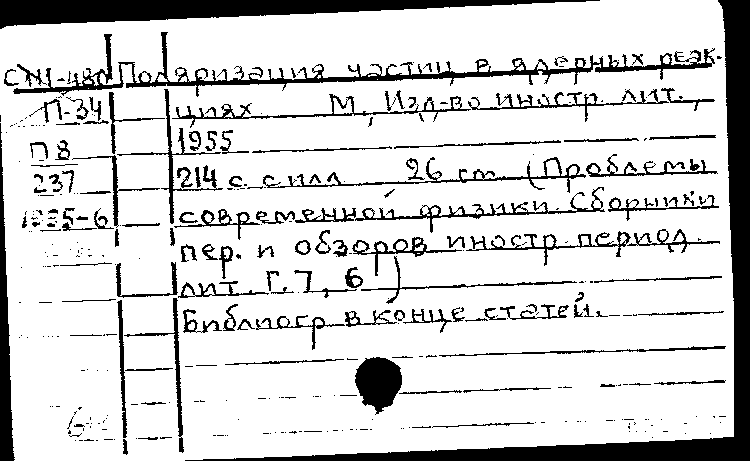 Поляризация частиц в ядерных реак-
П-34 циях М., Изд-во иностр. лит.,
П8 1955
237 214 с. с илл 26 см (Проблемы
1955-6 современной физики. Сборники
пер. и обзоров иностр. период.
лит. Г. 7, 6)
Библиогр в конце статей.